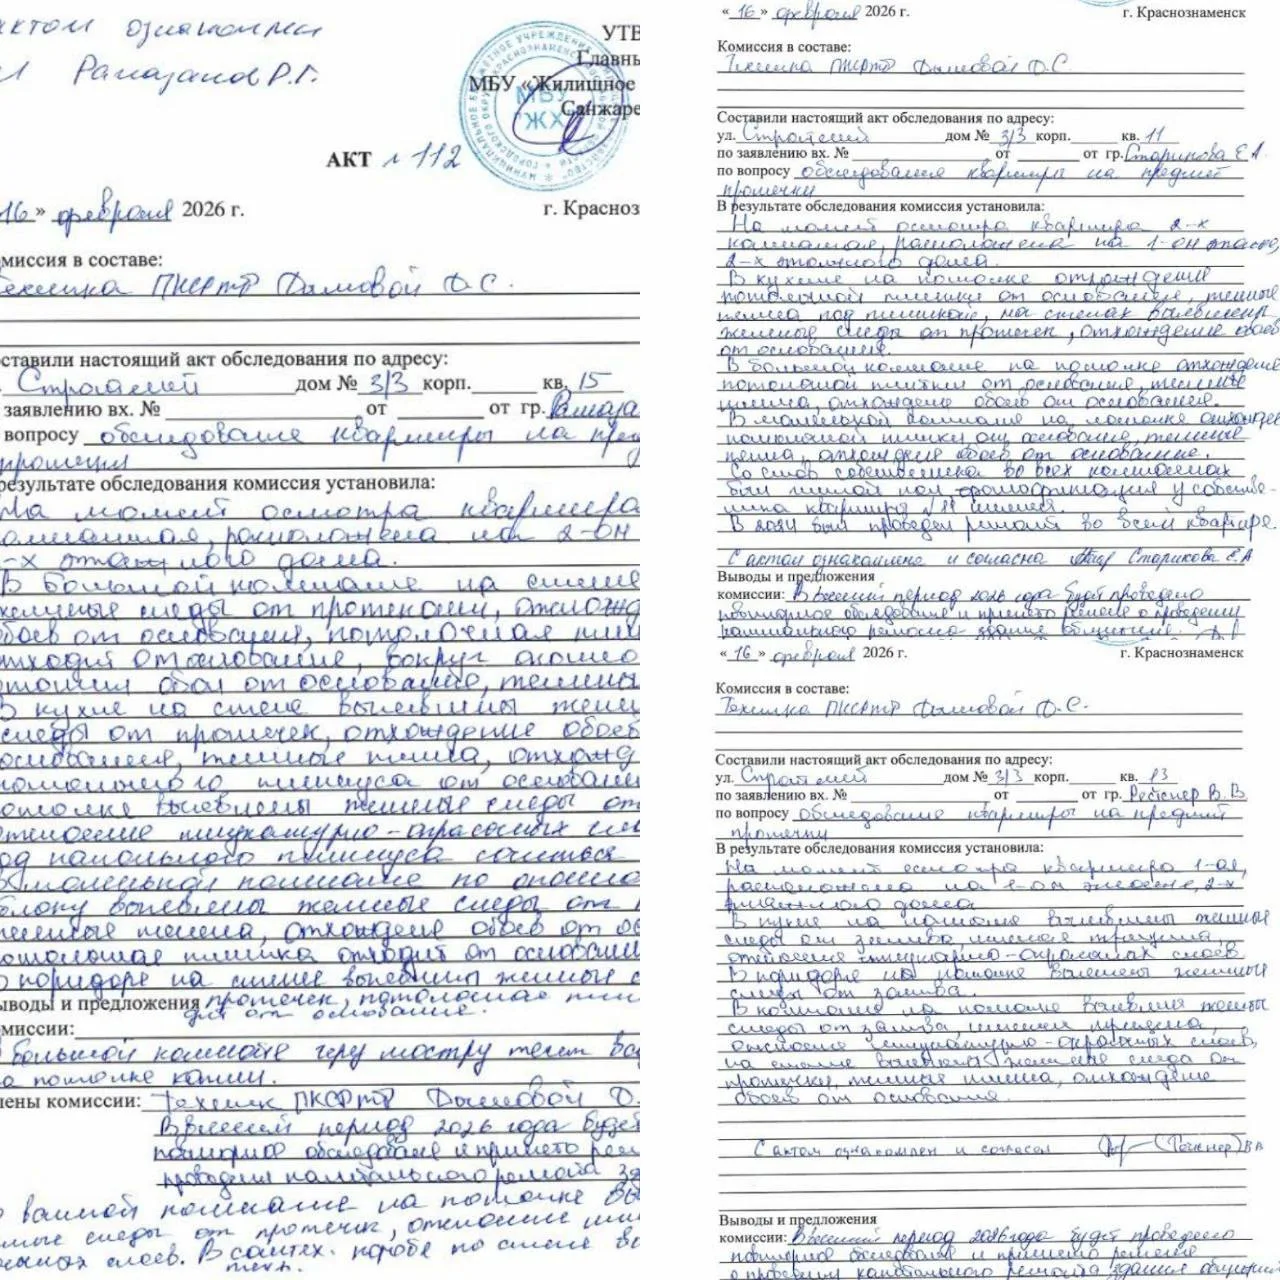 актом ознакомлен
Рамазанов Р.Г.
УТВ
Главн
МБУ «Жилищное
Санжаре
МБУ
"ЖХ"
АКТ №112
16 » февраля 2026 г.
г. Красноз
омиссия в составе:
Техника ПКСРТР Дымовой Д.С.
оставили настоящий акт обследования по адресу:
Строителей дом № 3/3 корп. кв. 15
заявлению вх. № от от гр. Рамаза
вопросу обследование квартиры на пред
протечки
результате обследования комиссия установила:
На момент осмотра квартира
комнатная, расположена на 2-ом
-х этажного дома.
В большой комнате на стене
желтые следы от протекания, отхожд
обоев от основания, потолочная пли
отходит от основание, вокруг оконно
отошли обои от основание, темные
В кухне на стене выявлены желт
следы от протечек, отхождение обоев
основания, темные пятна, отхожд
плинтуса от основани
потолке выявлены желтые следы от
отслоение штукатурно-окрасочных сло
од напольного плинтуса сочиться
В маленькой комнате по оконно
блоку выявлены желтые следы от
темные пятна, отхождение обоев от ос
потолочная плитка отходит от основани
В коридоре на стене выявлены желтые с
ыводы и предложения протечек, потолочная пли
от основание.
омиссии:
большой комнате через люстру течет во
на потолке капли.
лены комиссии: Техник ПКСРТР Дымовой Д.
В весенний период 2026 года будет
повторное обследование и принято реш
проведении капитального ремонта зд
В ванной комнате на потолке вы
следы от протечек, отслоение шт
слоев. В сантех. коробе по стене во
течь.
« 16 » февраля 2026 г. г. Краснознаменск
Комиссия в составе:
Техника ПКСРТР Дымовой Д.С.
Составили настоящий акт обследования по адресу:
ул. Строителей дом № 3/3 корп. кв. 11
по заявлению вх. № от от гр. Старикова Е.А.
по вопросу обследования квартиры на предмет
протечки
В результате обследования комиссия установила:
На момент осмотра квартира 2-х
комнатная, расположена на 1-ом этаже,
2-х этажного дома.
В кухне на потолке отхождение
потолочной плитки от основания, темные
пятна под плиткой, на стенах выявлены
желтые следы от протечек, отхождение обоев
от основания.
В большой комнате на потолке отхождение
потолочной плитки от основания, темные
пятна, отхождение обоев от основания.
В маленькой комнате на потолке отхождение
потолочной плитки от основание, темные
пятна, отхождение обоев от основание.
Со слов собственника во всех комнатах
был залит пол, фотофиксация у собстве-
нника квартиры №11 имеется.
В 2024 был проведен ремонт во всей квартире.
С актом ознакомлена и согласна Старикова Е.А
Выводы и предложения
комиссии: В весенний период 2026 года будет проведено
повторное обследование и принято решение о проведении
капитального ремонта здания общежития.
« 16 » февраля 2026 г. г. Краснознаменск
Комиссия в составе:
Техника ПКСРТР Дымовой Д.С.
Составили настоящий акт обследования по адресу:
ул. Строителей дом № 3/3 корп. кв. 13
по заявлению вх. № от от гр. В.В
по вопросу обследование квартиры на предмет
протечки
В результате обследования комиссия установила:
На момент осмотра квартира 1-ая,
расположена на этаже, 2-х
этажного дома
В кухне на потолке выявлены желтые
следы от залива, трещина,
отслоение штукатурно-окрасочных слоев
В коридоре на потолке выявлены желтые
следы от залива.
В комнате на потолке выявлены желтые
следы от залива, имеется трещина,
отслоение штукатурно-окрасочных слоев,
на стене выявлены желтые следы от
протечки, темные пятна, отхождение
обоев от основания.
С актом ознакомлен и согласен
Выводы и предложения
комиссии: В весенний период 2026 года будет проведено
повторное обследование и принято решение
о проведении капитального ремонта здания общежития